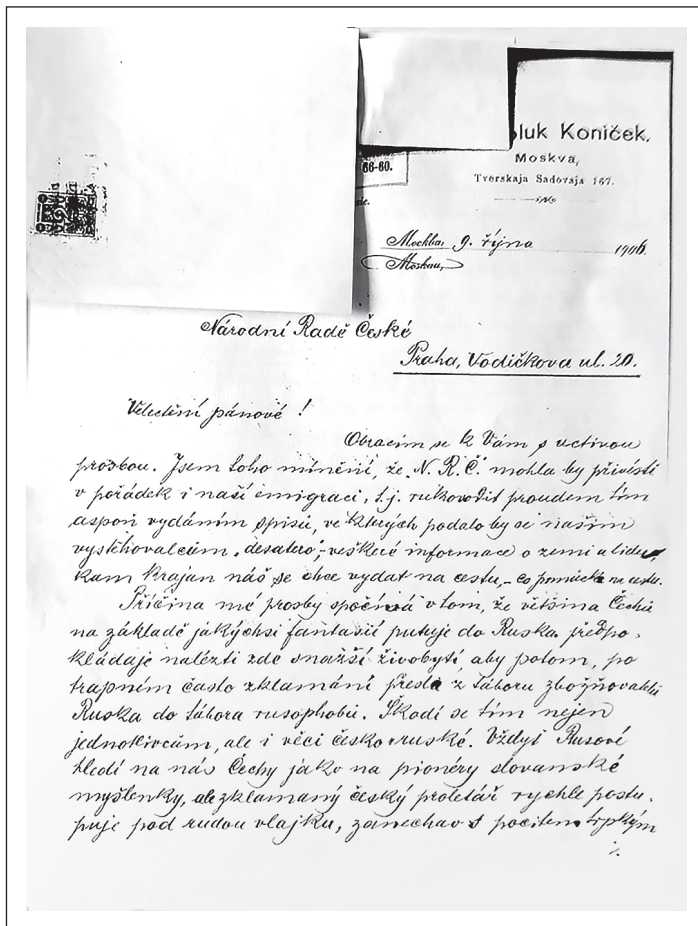 oluk Koníček.
Moskva,
66-60.
Tverskaja Sadovaja 167.
Москва, 9. října 1906.
Moskau,
Národní Radě České
Praha, Vodičkova ul. 20.
Velectění pánové!
Obracím se k Vám s uctivou
prosbou. Jsem toho mínění, že N. R. Č. mohla by přivésti
v pořádek i naší emigraci, t.j. rukovodit proudem tím
aspoň vydáním spisů, ve kterých podalo by se našim
vystěhovalcům „desatero", veškeré informace o zemi a lidu,
kam krajan náš se chce vydat na cestu, – co pomůcka na cestu.
Příčina mé prosby spočívá v tom, že většina Čechů
na základě jakýchsi fantasií putuje do Ruska předpo-
kládaje nalézti zde snažší živobytí aby potom, po
trapném často zklamání přešla z táboru zbožňovatelů
Ruska do tábora rusophobů. Škodí se tím nejen
jednotlivcům, ale i věci česko-ruské. Vždyť Rusové
hledí na nás Čechy jako na pionéry slovanské
myšlenky, ale zklamaný český proletář rychle postu-
puje pod rudou vlajku, zanechav s pocitem trpkým
./.